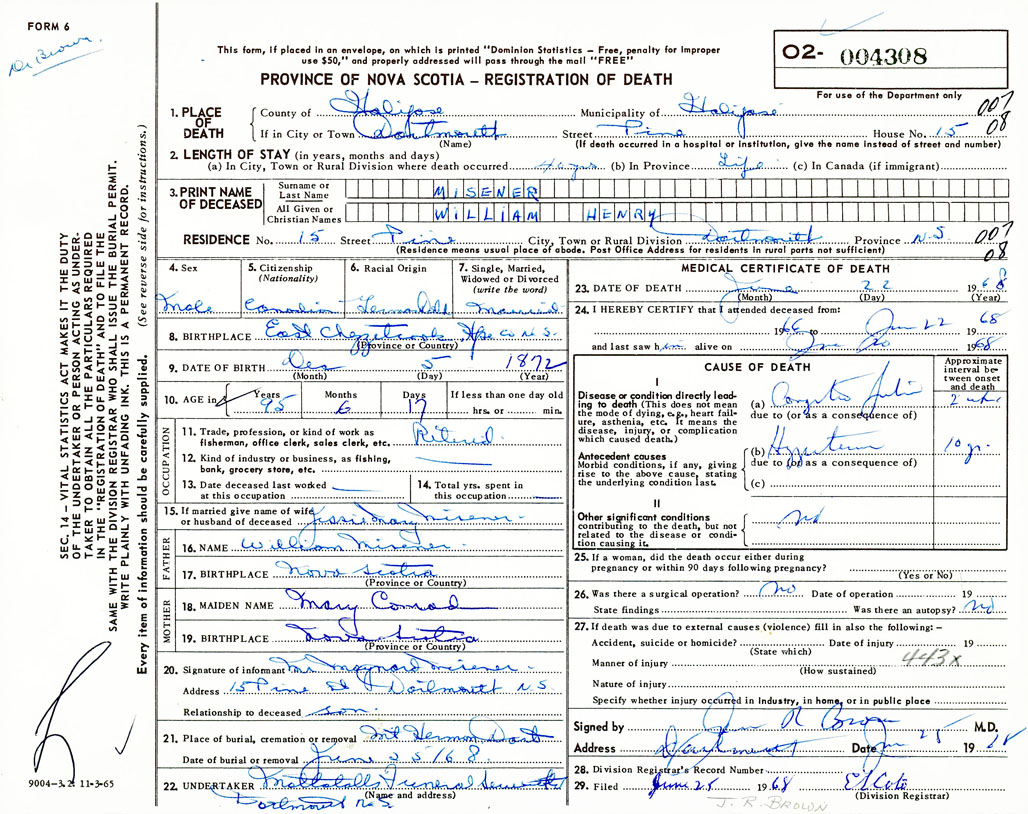 FORM 6
Dr Brown.
This form, if placed in an envelope, on which is printed "Dominion Statistics – Free, penalty for improper
use $50," and properly addressed will pass through the mail "FREE"
PROVINCE OF NOVA SCOTIA – REGISTRATION OF DEATH
O2- 004308
For use of the Department only
SEC. 14 – VITAL STATISTICS ACT MAKES IT THE DUTY
OF THE UNDERTAKER OR PERSON ACTING AS UNDER-
TAKER TO OBTAIN ALL THE PARTICULARS REQUIRED
IN THE "REGISTRATION OF DEATH" AND TO FILE THE
SAME WITH THE DIVISION REGISTRAR WHO SHALL ISSUE THE BURIAL PERMIT.
WRITE PLAINLY WITH UNFADING INK. THIS IS A PERMANENT RECORD.
Every item of information should be carefully supplied. (See reverse side for instructions.)
1. PLACE OF DEATH
County of Halifax Municipality of Halifax 007
If in City or Town Dartmouth Street Pine House No. 15 08
(Name) (If death occurred in a hospital or institution, give the name instead of street and number)
2. LENGTH OF STAY (in years, months and days)
(a) In City, Town or Rural Division where death occurred (b) In Province Life (c) In Canada (if immigrant)
3. PRINT NAME OF DECEASED
Surname or Last Name MISENER
All Given or Christian Names WILLIAM HENRY
RESIDENCE No. 15 Street Pine City, Town or Rural Division Dartmouth Province N.S. 007
(Residence means usual place of abode. Post Office Address for residents in rural parts not sufficient) 08
4. Sex Male
5. Citizenship (Nationality) Canadian
6. Racial Origin
7. Single, Married, Widowed or Divorced (write the word) Married
8. BIRTHPLACE East Chezzetcook Hfx Co N.S.
(Province or Country)
9. DATE OF BIRTH Dec 5 1872
(Month) (Day) (Year)
10. AGE in Years 95 Months 6 Days 17 If less than one day old hrs. or min.
OCCUPATION
11. Trade, profession, or kind of work as fisherman, office clerk, sales clerk, etc. Retired
12. Kind of industry or business, as fishing, bank, grocery store, etc.
13. Date deceased last worked at this occupation
14. Total yrs. spent in this occupation
15. If married give name of wife or husband of deceased Jessie Mary Misener
FATHER
16. NAME William Misener
17. BIRTHPLACE Nova Scotia
(Province or Country)
MOTHER
18. MAIDEN NAME Mary Conrad
19. BIRTHPLACE Nova Scotia
(Province or Country)
20. Signature of informant Mr Maynard Misener
Address 15 Pine St Dartmouth N.S.
Relationship to deceased son
21. Place of burial, cremation or removal Mt Hermon Dart
Date of burial or removal June 25/68
22. UNDERTAKER Mattatalls Funeral Service Ltd
(Name and address)
Dartmouth N.S
9004–3.2: 11-3-65
MEDICAL CERTIFICATE OF DEATH
23. DATE OF DEATH June 22 1968
(Month) (Day) (Year)
24. I HEREBY CERTIFY that I attended deceased from:
1966 to Jun 22 1968
and last saw him alive on Jun 20 1968
CAUSE OF DEATH
Approximate interval between onset and death
I
Disease or condition directly leading to death (This does not mean the mode of dying, e.g., heart failure, asthenia, etc. It means the disease, injury, or complication which caused death.)
(a)
due to (or as a consequence of)
Antecedent causes
Morbid conditions, if any, giving rise to the above cause, stating the underlying condition last.
(b) 10 yr.
due to (or as a consequence of)
(c)
II
Other significant conditions
contributing to the death, but not related to the disease or condition causing it. No
25. If a woman, did the death occur either during
pregnancy or within 90 days following pregnancy?
(Yes or No)
26. Was there a surgical operation? No Date of operation 19
State findings Was there an autopsy? No
27. If death was due to external causes (violence) fill in also the following: –
Accident, suicide or homicide? Date of injury 19
(State which)
Manner of injury 443x
(How sustained)
Nature of injury
Specify whether injury occurred in Industry, in home, or in public place
Signed by R Brown M.D.
Address Dartmouth Date Jun 25 1968
28. Division Registrar's Record Number
29. Filed June 25 1968
(Division Registrar)
J. R. BROWN